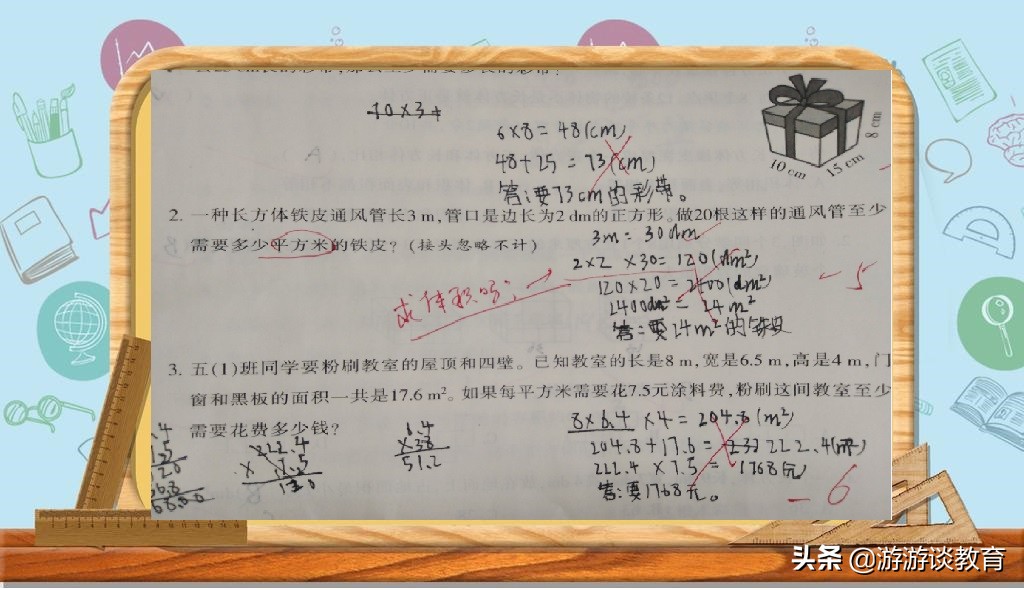 10×3+
6×8=48(cm)
48+25=73(cm)
答:要73cm的彩带。
8 cm
10 cm
15 cm
2. 一种长方体铁皮通风管长3 m,管口是边长为2 dm的正方形。做20根这样的通风管至少
需要多少平方米的铁皮?(接头忽略不计)
3m=30dm
2×2×30=120(dm²)
120×20=2400(dm²)
2400dm²=24m²
答:要24m²的铁皮
求体积吗?
-5
3. 五(1)班同学要粉刷教室的屋顶和四壁。已知教室的长是8 m,宽是6.5 m,高是4 m,门
窗和黑板的面积一共是17.6 m²。如果每平方米需要花7.5元涂料费,粉刷这间教室至少
需要花费多少钱?
222.4
×7.5
6.4
×38
51.2
8×6.4×4=204.8(m²)
204.8+17.6=222.4(m²)
222.4×7.5=1768元
答:要1768元。
-6
头条 @游游谈教育